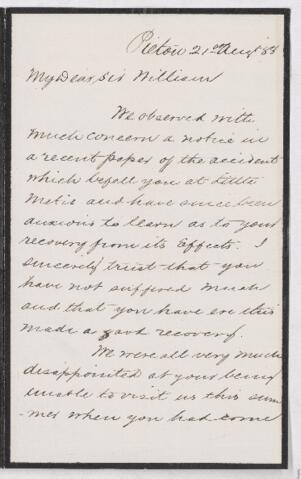 Pictou 21st Augt 88
My Dear Sir William
We observed with
much concern a notice in
a recent paper of the accident
which befell you at Little
Metis and have since been
anxious to learn as to your
recovery from its Effects. I
sincerely trust that you
have not suffered much
and that you have ere this
made a good recovery.
We were all very much
disappointed at your being
unable to visit us this sum-
mer when you had come